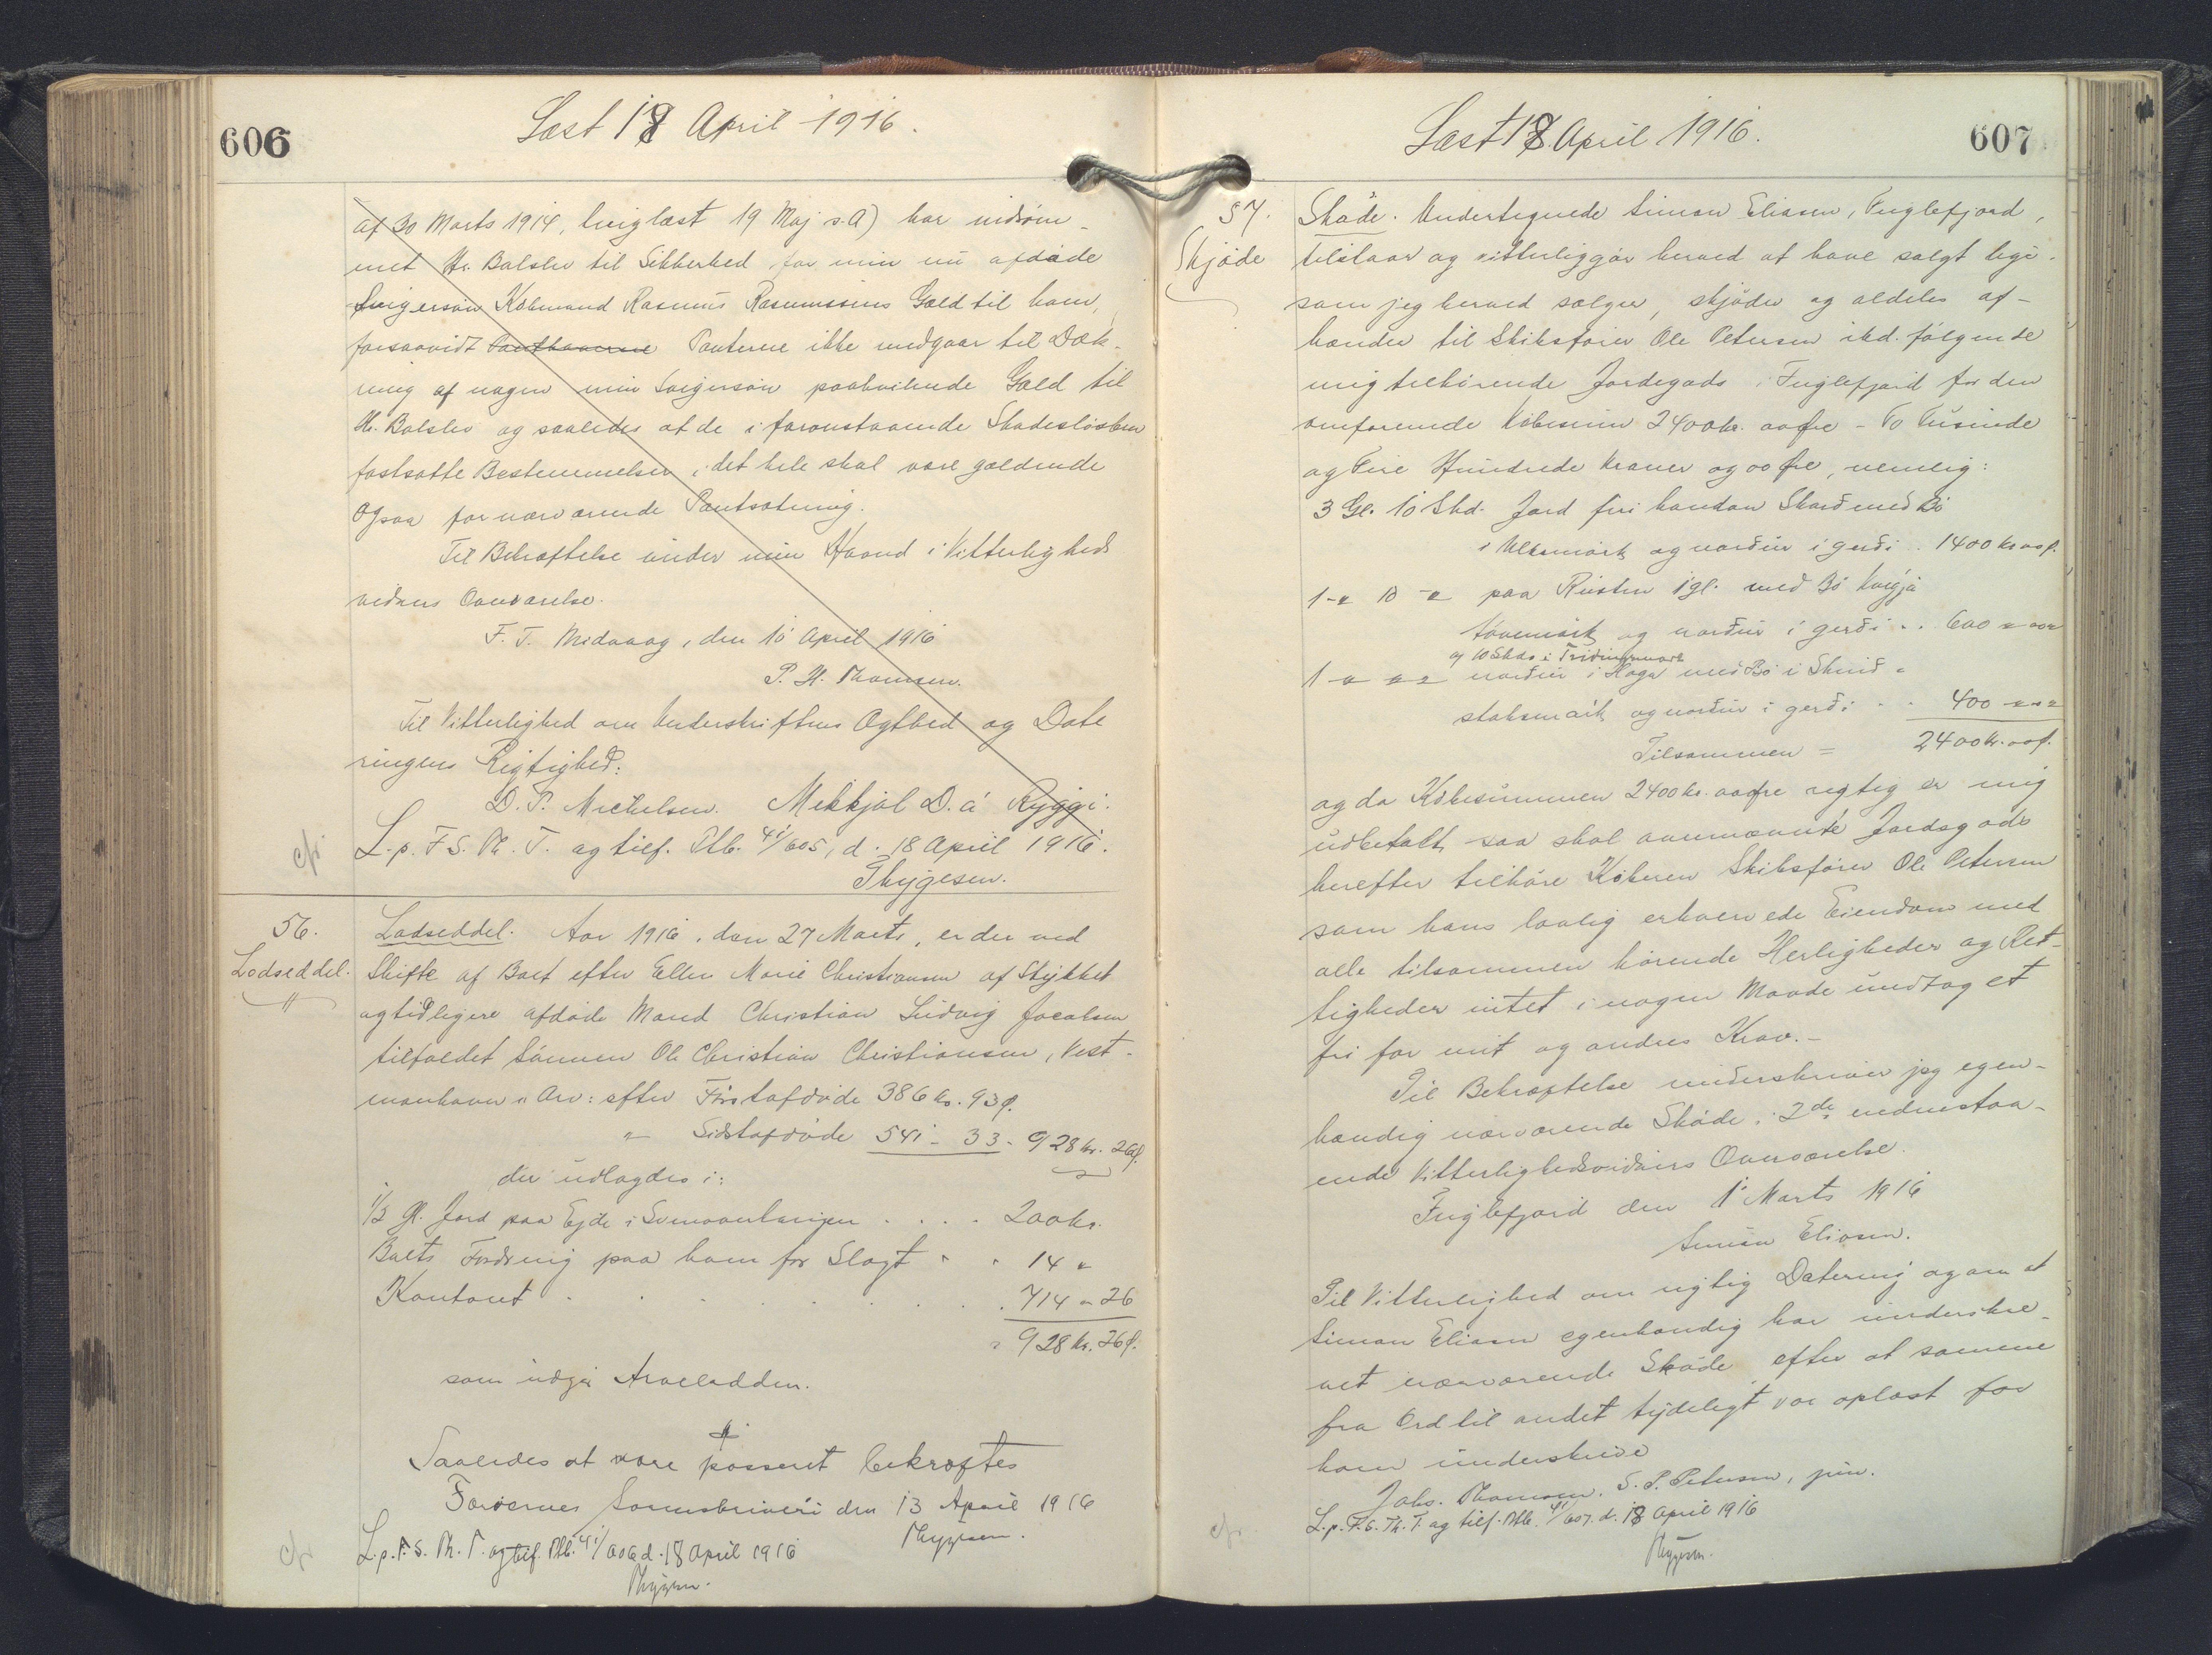 606
Læst 18 April 1916.
af 30 Marts 1914, tinglæst 19 Maj s.A) har indrøm-
met Hr. Balslev til Sikkerhed for min nu afdøde
Svigersøn Købmand Rasmus Rasmussens Gæld til ham,
forsaavidt Panthaverne Panterne ikke medgaar til Dæk-
ning af nogen min Svigersøn paahvilende Gæld til
Hr. Balslev og saaledes at de i foranstaaende Skadesløsbrev
fastsatte Bestemmelser i det hele skal være gældende
ogsaa for nærværende Pantsætning.
Til Bekræftelse under min Haand i Vitterligheds
vidners Overværelse.
F. T. Midvaag, den 10 April 1916
P. H. Thomsen.
Til Vitterlighed om Underskriftens Ægthed og Date
ringens Rigtighed:
D. P. Michelsen. Mikkjal D. á Ryggi.
L. p. F. S. Th. T. og tilf. Ptb. 41/605, d. 18 April 1916.
Thygesen.
56.
Lodseddel.
Lodseddel. Aar 1916, den 27 Marts, er der ved
Skifte af Boet efter Ellen Marie Christiansen af Stykket
og tidligere afdøde Mand Christian Ludvig Jacobsen
tilfaldet Sønnen Ole Christian Christiansen, Vest-
manhavn i Arv: efter Førstafdøde 386 kr. 93 ø.
" Sidstafdøde 541 - 33 - 928 kr. 26 ø.
der udlagdes i:
1/3 Gl. Jord paa Ejde i 200 kr.
Boets Fordring paa ham for Slagt " " 14 "
Kontant . . . . 714 " 26
928 kr. 26 ø.
som udgør Arvelodden.
Saaledes at være passeret bekræftes
Færøernes Sorenskriveri den 13 April 1916
Thygesen.
L. p. F. S. Th. T. og tilf. Ptb. 41/606 d. 18 April 1916
Thygesen.
607
Læst 18 April 1916.
57.
Skjøde
Skøde. Undertegnede Simon Eliasen, Fuglefjord,
tilstaar og vitterliggør herved at have solgt lige-
som jeg herved sælger, skjøder og aldeles af-
hænder til Skibsfører Ole Petersen ibd. følgende
mig tilhørende Jordegods i Fuglefjord for den
omforenede Købesum 2400 kr. 00 Øre - To Tusinde
og Fire Hundrede Kroner og 00 Øre, nemlig:
3 Gl. 10 Skd. Jord firi handan Skard med Bø
i og nordur i gerdi . 1400 kr 00 ø.
1 - " 10 - " paa Rusten 1 gl. med Bø
og nordur i gerdi . . 600 " 00 "
og 10 Skds i Tridingsmørk
1 - " - " - " nordur i Haga med Bø i Skrid-
staksmørk og nordur i gerdi . . 400 - " - "
Tilsammen = 2400 kr. 00 ø.
og da Købesummen 2400 kr. 00 Øre rigtig er mig
udbetalt saa skal ovennævnte Jordegods
herefter tilhøre Køberen Skibsfører Ole Petersen
som hans lovlig erhvervede Eiendom med
alle tilsammen hørende Herligheder og Ret-
tigheder intet i nogen Maade undtaget
fri for mit og andres Krav. -
Til Bekræftelse underskriver jeg egen-
hændig nærværende Skøde i 2de medunstaa-
ende Vitterlighedsvidners Overværelse.
Fuglefjord den 1 Marts 1916
Simon Eliasen.
Til Vitterlighed om rigtig Datering og om at
Simon Eliasen egenhændig har underskre-
vet nærværende Skøde efter at samme
fra Ord til andet tydeligt var oplæst for
ham underskrive
Johs. Thomsen. S. P. Petersen, jun.
L. p. F. S. Th. T. og tilf. Ptb. 41/607. d. 18 April 1916
Thygesen.